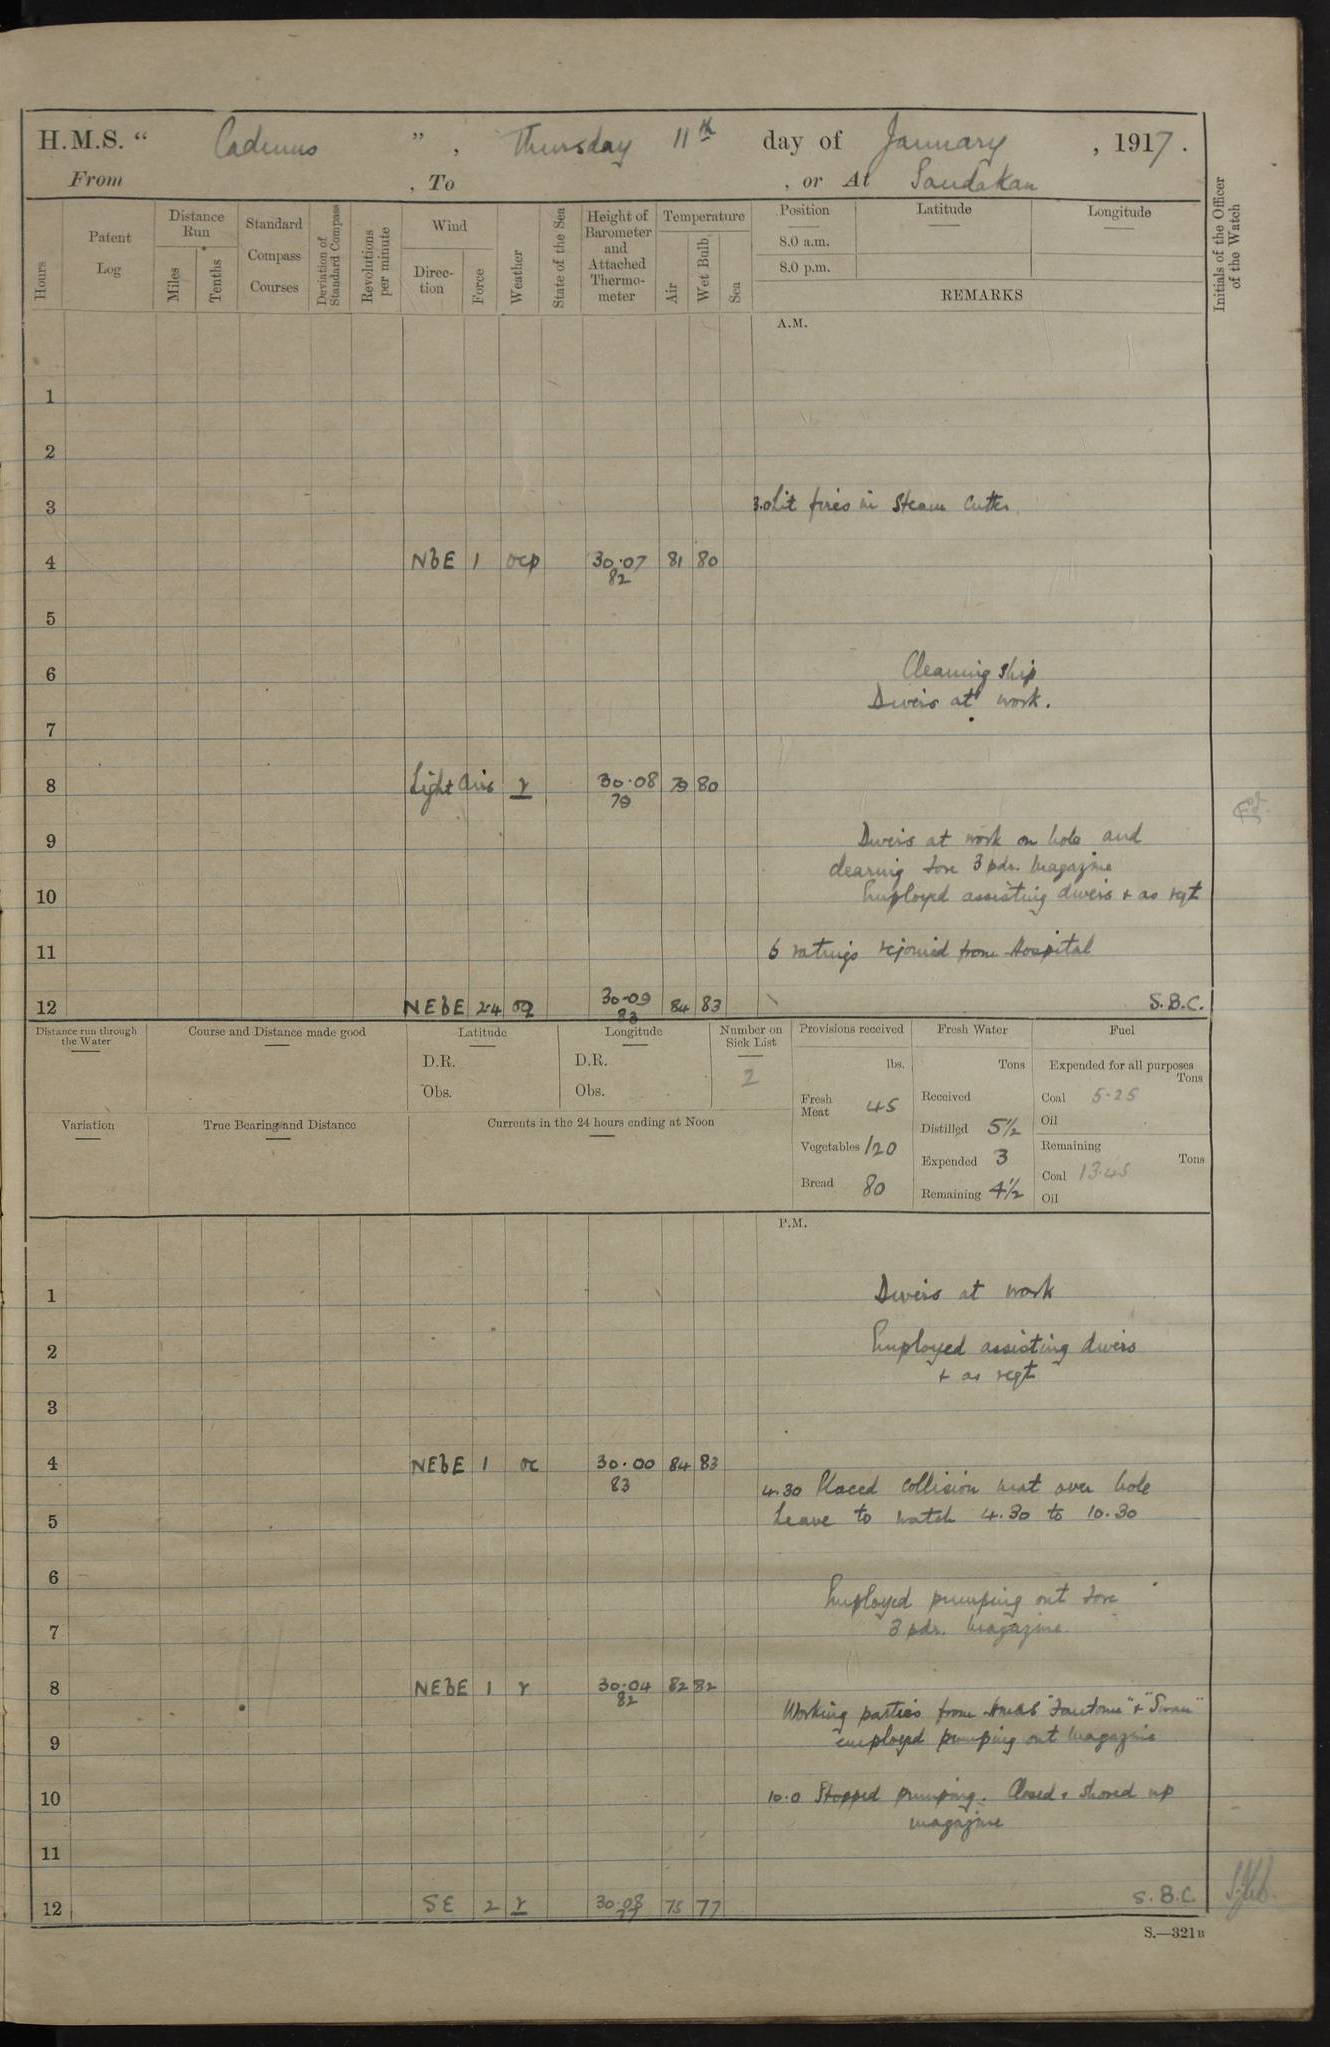 H.M.S. " Cadmus ", Thursday 11th day of January, 1917.
From , To , or At Sandakan
Hours
Patent Log
Distance Run
Miles
Tenths
Standard Compass Courses
Deviation of Standard Compass
Revolutions per minute
Wind
Direction
Force
Weather
State of the Sea
Height of Barometer and Attached Thermometer
Temperature
Air
Wet Bulb
Sea
Position
Latitude
Longitude
8.0 a.m.
8.0 p.m.
REMARKS
Initials of the Officer of the Watch
A.M.
1
2
3 3.0 Lit fires in Steam Cutter.
4 NbE 1 ocp 30.07 81 80
82
5
6 Cleaning Ship
Divers at work.
7
8 Light airs r 30.08 79 80
79
9 Divers at work on hole and
clearing Fore 3 pdr. Magazine
10 Employed assisting divers + as reqt
11 6 ratings rejoined from Hospital
12 NEbE 2-4 oq 30.09 84 83 S.B.C.
83
Distance run through the Water
Course and Distance made good
Latitude
D.R.
Obs.
Longitude
D.R.
Obs.
Number on Sick List
2
Provisions received
lbs.
Fresh Meat 45
Vegetables 120
Bread 80
Fresh Water
Tons
Received
Distilled 5½
Expended 3
Remaining 4½
Fuel
Expended for all purposes
Tons
Coal 5.25
Oil
Remaining
Tons
Coal 13.45
Oil
Variation
True Bearing and Distance
Currents in the 24 hours ending at Noon
P.M.
1 Divers at work
2 Employed assisting divers
+ as reqt
3
4 NEbE 1 oc 30.00 84 83
83
4.30 Placed collision mat over hole
5 Leave to watch 4.30 to 10.30
6 Employed pumping out Fore
7 3 pdr. Magazine.
8 NEbE 1 r 30.04 82 82
82
Working parties from HMAS "Fantome" + "Swan"
9 employed pumping out Magazine
10 10.0 Stopped pumping. Closed + shored up
magazine
11
12 SE 2 r 30.08 75 77 S.B.C.
77
S.—321B